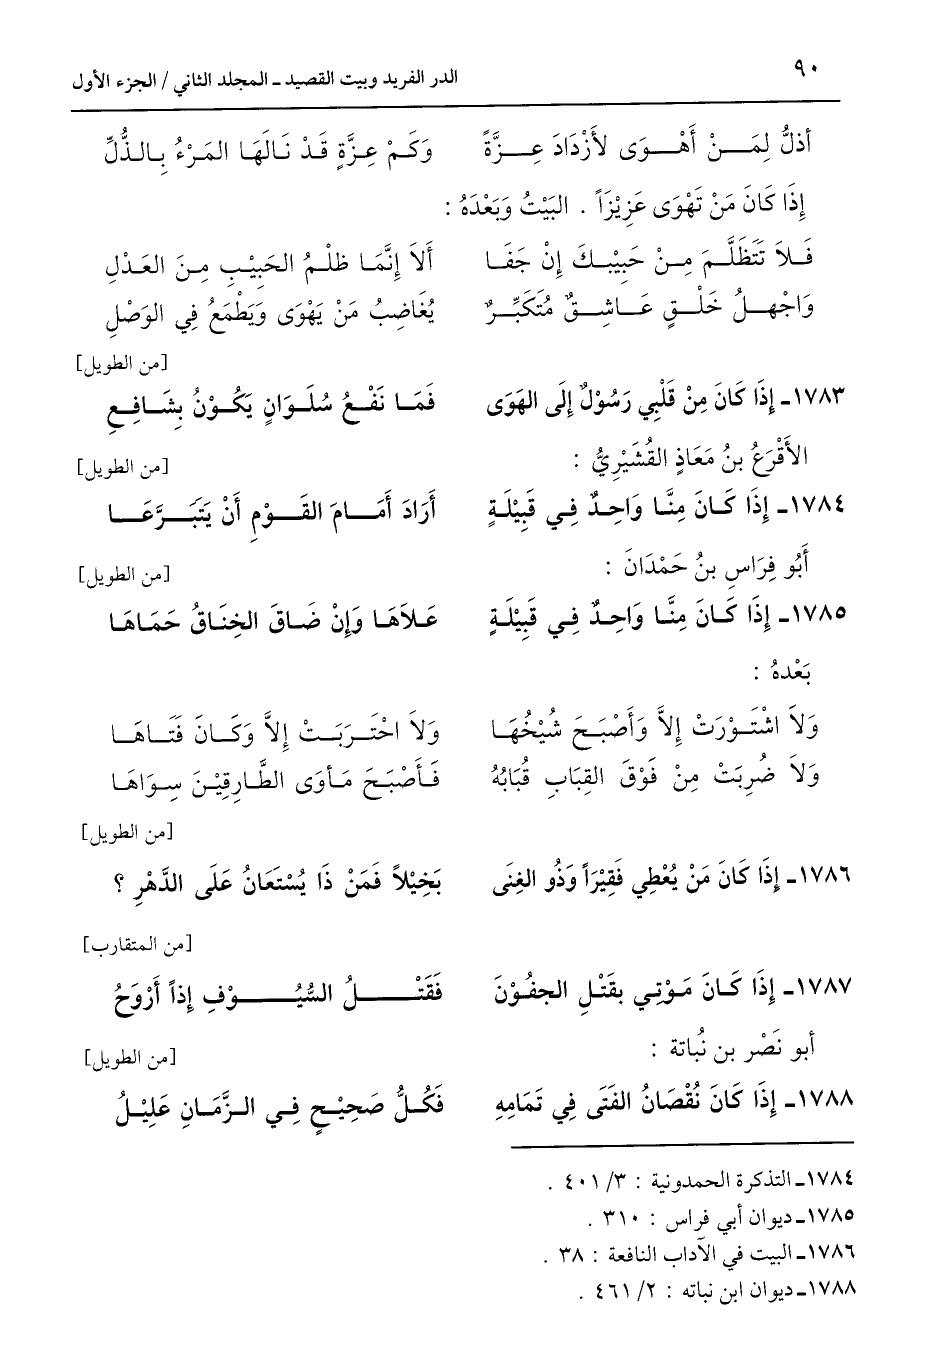 ٩٠ الدر الفريد وبيت القصيد ـ المجلد الثاني / الجزء الأول
أذلُّ لِمَنْ أَهْوَى لأَزْدَادَ عِزَّةً وَكَمْ عِزَّةٍ قَدْ نَالَهَا المَرْءُ بِالذُّلِّ
إِذَا كَانَ مَنْ تَهْوَى عَزِيْزَاً . البَيْتُ وَبَعْدَهُ :
فَلاَ تَتَظَلَّمْ مِنْ حَبِيْبِكَ إِنْ جَفَا أَلاَ إِنَّمَا ظلْمُ الحَبِيْبِ مِنَ العَدْلِ
وَاجْهلُ خَلْقٍ عَاشِقٌ مُتَكَبِّرٌ يُغَاضِبُ مَنْ يَهْوَى وَيَطْمَعُ فِي الوَصْلِ
[من الطويل]
١٧٨٣ـ إِذَا كَانَ مِنْ قَلْبِي رَسُوْلٌ إِلَى الهَوَى فَمَا نَفْعُ سُلَوَانٍ يَكُوْنُ بِشَافِعِ
الأَقْرَعُ بنُ مَعَاذٍ القُشَيْرِيُّ : [من الطويل]
١٧٨٤ـ إِذَا كَانَ مِنَّا وَاحِدٌ فِي قَبِيْلَةٍ أَرَادَ أَمَامَ القَوْمِ أَنْ يَتَبَرَّعَا
أَبُو فِرَاسِ بنُ حَمْدَانَ : [من الطويل]
١٧٨٥ـ إِذَا كَانَ مِنَّا وَاحِدٌ فِي قَبِيْلَةٍ عَلاَهَا وَإِنْ ضَاقَ الخِنَاقُ حَمَاهَا
بَعْدهُ :
وَلاَ اشْتَوْرَتْ إِلاَّ وَأَصْبَحَ شيْخُهَا وَلاَ احْتَرَبَتْ إِلاَّ وَكَانَ فَتَاهَا
وَلاَ ضُرِبَتْ مِنْ فَوْقَ القِبَابِ قُبَابُهُ فَأَصْبَحَ مَأوَى الطَّارِقِيْنَ سِوَاهَا
[من الطويل]
١٧٨٦ـ إِذَا كَانَ مَنْ يُعْطِي فَقِيْرَاً وَذُو الغِنَى بَخِيْلاً فَمَنْ ذَا يُسْتَعَانُ عَلَى الدَّهْرِ ؟
[من المتقارب]
١٧٨٧ـ إِذَا كَانَ مَوْتِي بقَتْلِ الجفُوْنَ فَقَتْلُ السُّيُوْفِ إِذاً أَرْوَحُ
أبو نَصْر بن نُباتة : [من الطويل]
١٧٨٨ـ إِذَا كَانَ نُقْصَانُ الفَتَى فِي تَمَامِهِ فَكُلُّ صَحِيْحٍ فِي الزَّمَانِ عَلِيْلُ
١٧٨٤ـ التذكرة الحمدونية : ٣/ ٤٠١ .
١٧٨٥ـ ديوان أبي فراس : ٣١٠ .
١٧٨٦ـ البيت في الآداب النافعة : ٣٨ .
١٧٨٨ـ ديوان ابن نباته : ٢/ ٤٦١ .